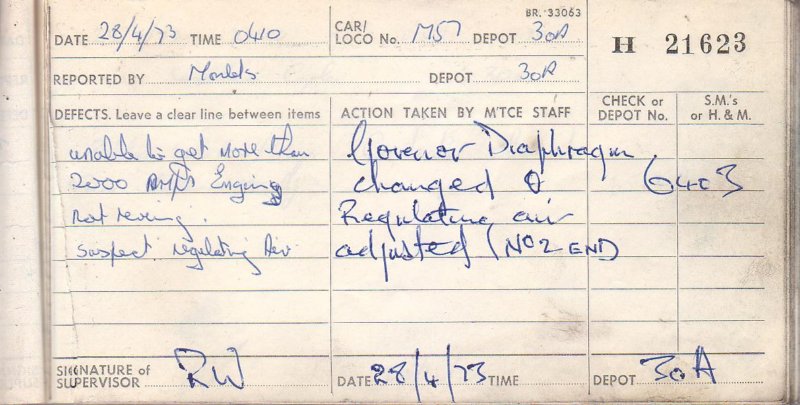 BR. 33063
DATE 28/4/73 TIME 0410 CAR/LOCO No. M57 DEPOT 30A H 21623
REPORTED BY Moulds DEPOT 30A
DEFECTS. Leave a clear line between items ACTION TAKEN BY M'TCE STAFF CHECK or DEPOT No. S.M.'s or H. & M.
unable to get more than Govenor Diaphragm
2000 Amps Engine changed & 6403
not reving. Regulating air
suspect regulating Air adjusted (NO 2 END)
SIGNATURE of SUPERVISOR RW DATE 28/4/73 TIME DEPOT 30A